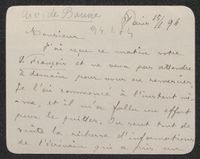 Paris 15/1 96
Monsieur
J'ai reçu ce matin votre
François et ne veux pas attendre
à demain pour vous en remercier.
Je l'ai commencé à l'instant
et il m'a fallu un effort
pour le quitter. On sent tout de
suite la richesse d'informations
de l'écrivain